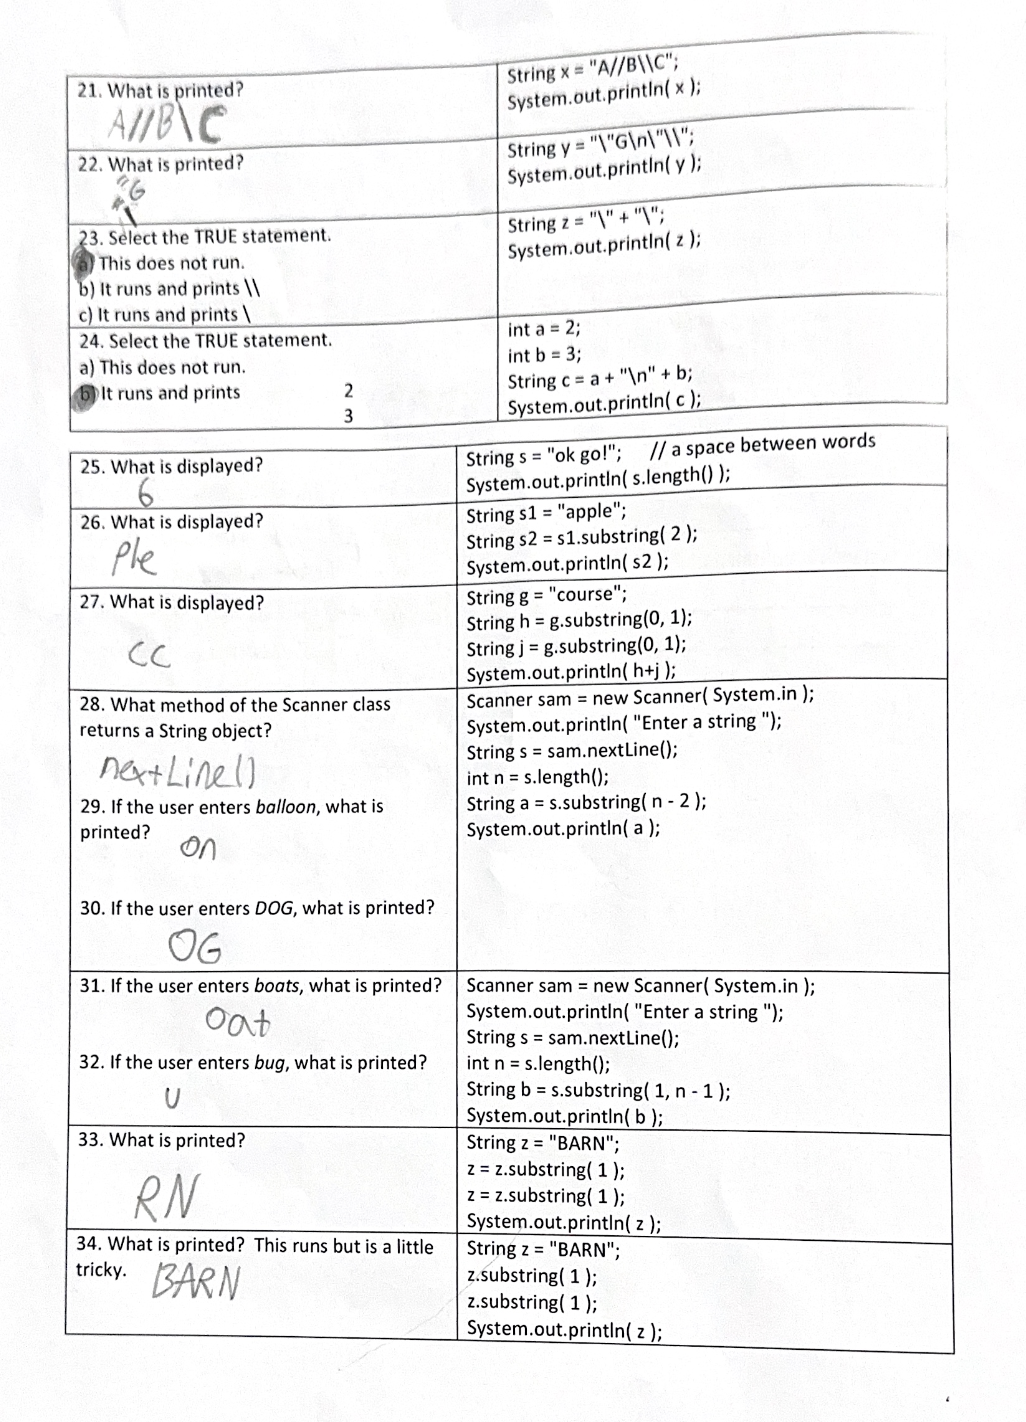 21. What is printed?
A//B\C
String x = "A//B\\C";
System.out.println( x );
22. What is printed?
"G
"\
String y = "\"G\n\"\\";
System.out.println( y );
23. Select the TRUE statement.
a) This does not run.
b) It runs and prints \\
c) It runs and prints \
String z = "\" + "\";
System.out.println( z );
24. Select the TRUE statement.
a) This does not run.
b) It runs and prints 2
3
int a = 2;
int b = 3;
String c = a + "\n" + b;
System.out.println( c );
25. What is displayed?
6
String s = "ok go!"; // a space between words
System.out.println( s.length() );
26. What is displayed?
ple
String s1 = "apple";
String s2 = s1.substring( 2 );
System.out.println( s2 );
27. What is displayed?
cc
String g = "course";
String h = g.substring(0, 1);
String j = g.substring(0, 1);
System.out.println( h+j );
28. What method of the Scanner class
returns a String object?
nextLine()
29. If the user enters balloon, what is
printed?
on
30. If the user enters DOG, what is printed?
OG
Scanner sam = new Scanner( System.in );
System.out.println( "Enter a string ");
String s = sam.nextLine();
int n = s.length();
String a = s.substring( n - 2 );
System.out.println( a );
31. If the user enters boats, what is printed?
oat
32. If the user enters bug, what is printed?
U
Scanner sam = new Scanner( System.in );
System.out.println( "Enter a string ");
String s = sam.nextLine();
int n = s.length();
String b = s.substring( 1, n - 1 );
System.out.println( b );
33. What is printed?
RN
String z = "BARN";
z = z.substring( 1 );
z = z.substring( 1 );
System.out.println( z );
34. What is printed? This runs but is a little
tricky.
BARN
String z = "BARN";
z.substring( 1 );
z.substring( 1 );
System.out.println( z );